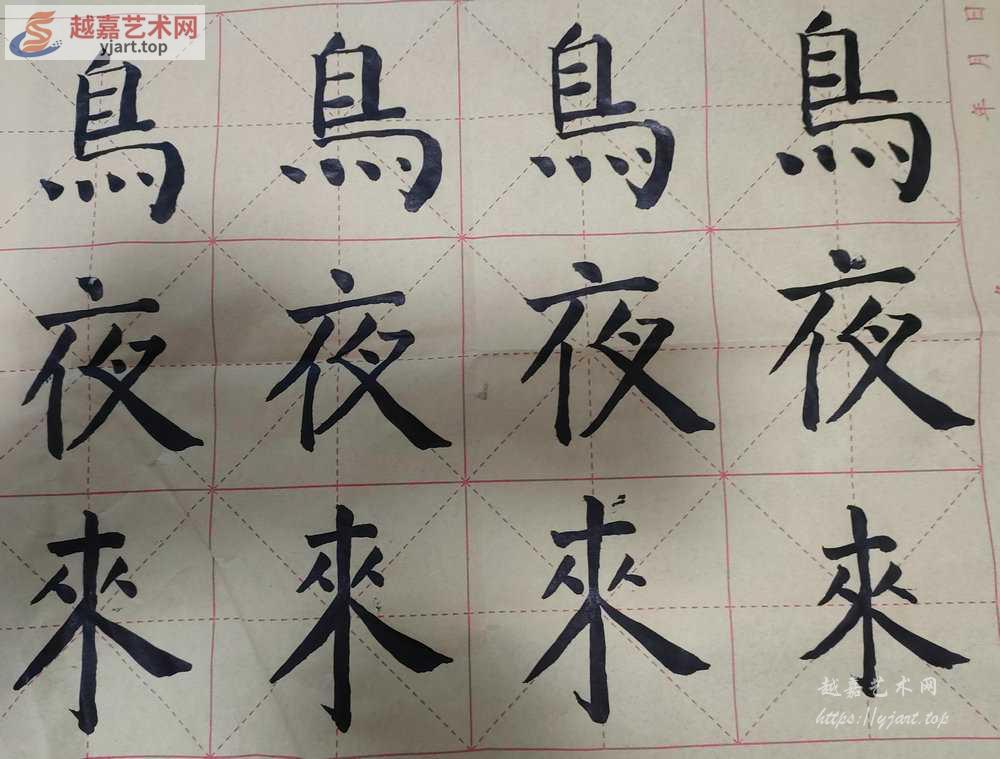 越嘉艺术网
yjart.top
鳥鳥鳥鳥
夜夜夜夜
來來來來
年月日
越嘉艺术网
https://yjart.top